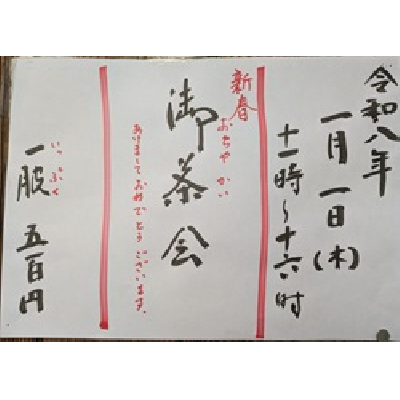 令和八年
一月一日(木)
十一時~十六時
新春
おちゃかい
御茶会
あけましておめでとうございます。
いっぷく
一服 五百円